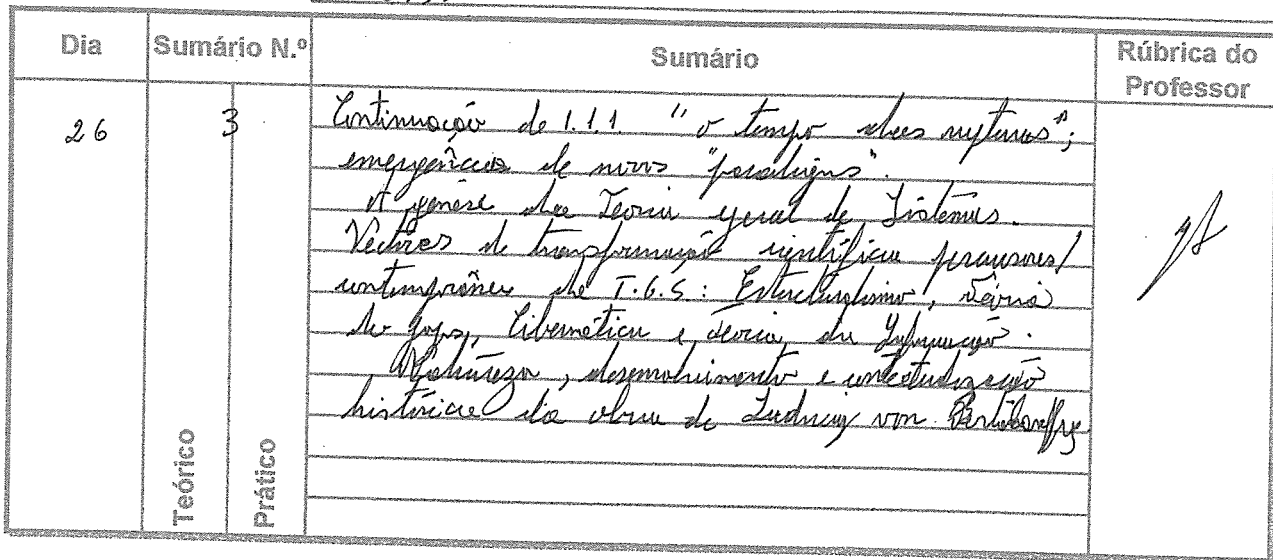 Dia
Sumário N.º
Sumário
Rúbrica do
Professor
26
3
Continuação de 1.1.1. "o tempo das rupturas";
emergência de novos "paradigmas".
A génese da Teoria geral de Sistemas.
Vectores de transformação científica precursores/
contemporâneos da T.G.S: Estruturalismo, Teoria
de jogos, Cibernética e teoria da Informação.
Natureza, desenvolvimento e contextualização
histórica da obra de Ludwig von Bertalanffy
Teórico
Prático